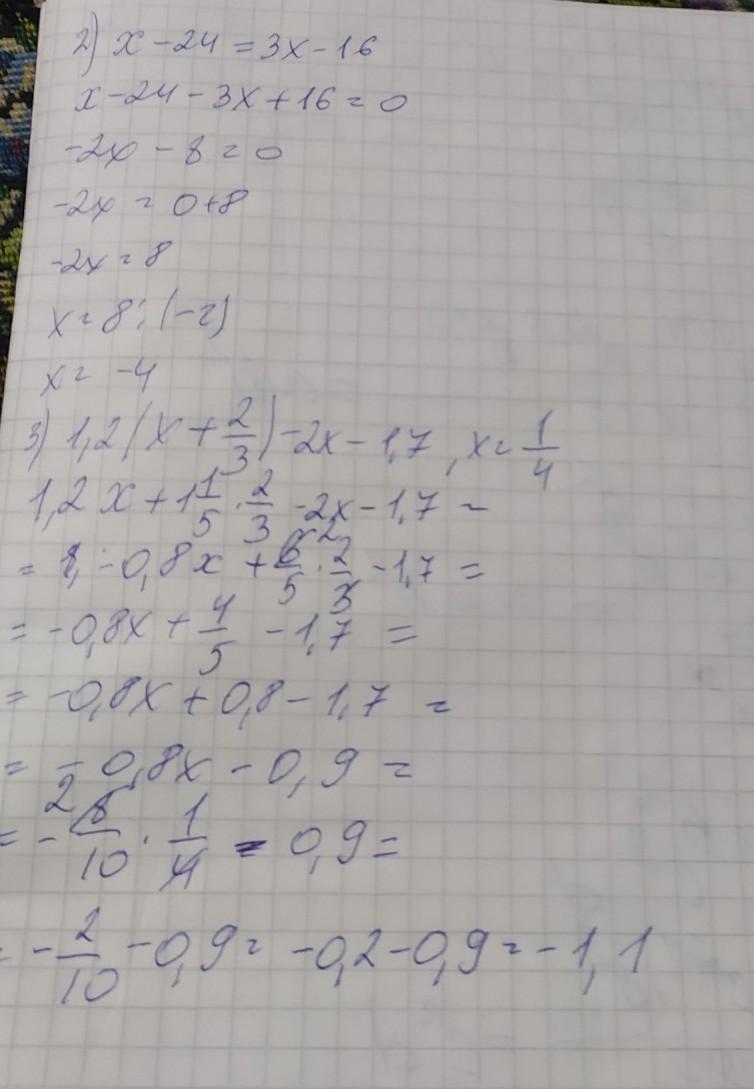 2) x - 24 = 3x - 16
x - 24 - 3x + 16 = 0
-2x - 8 = 0
-2x = 0+8
-2x = 8
x = 8 : (-2)
x = -4
3) 1,2 (x + 2/3) - 2x - 1,7, x = 1/4
1,2x + 1 1/5 · 2/3 - 2x - 1,7 =
= -0,8x + 6/5 · 2/3 - 1,7 =
= -0,8x + 4/5 - 1,7 =
= -0,8x + 0,8 - 1,7 =
= -0,8x - 0,9 =
= - 8/10 · 1/4 - 0,9 =
= - 2/10 - 0,9 = -0,2 - 0,9 = -1,1